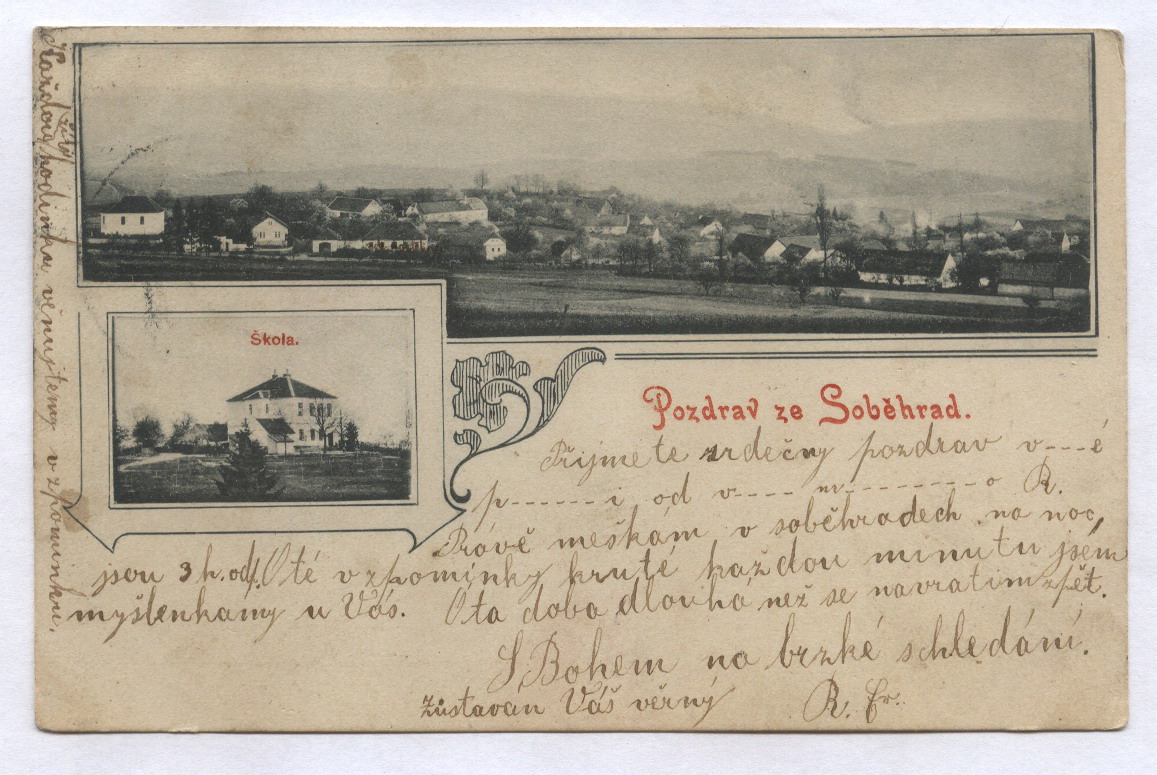 Škola.
Pozdrav ze Soběhrad.
Přijmete srdečny pozdrav v---é
p------i od v---- m---------o R.
Právě meškám v soběhradech na noc,
jsou 3 h. od Oté vzpomínky kruté každou minutu jsem
myšlenkamy u Vás. Ota doba dlouhá než se navratim zpět.
S Bohem na brzké schledání.
Zůstavan Váš věrný R. fr.
Každou hodinku věnujtemy vzpominku.